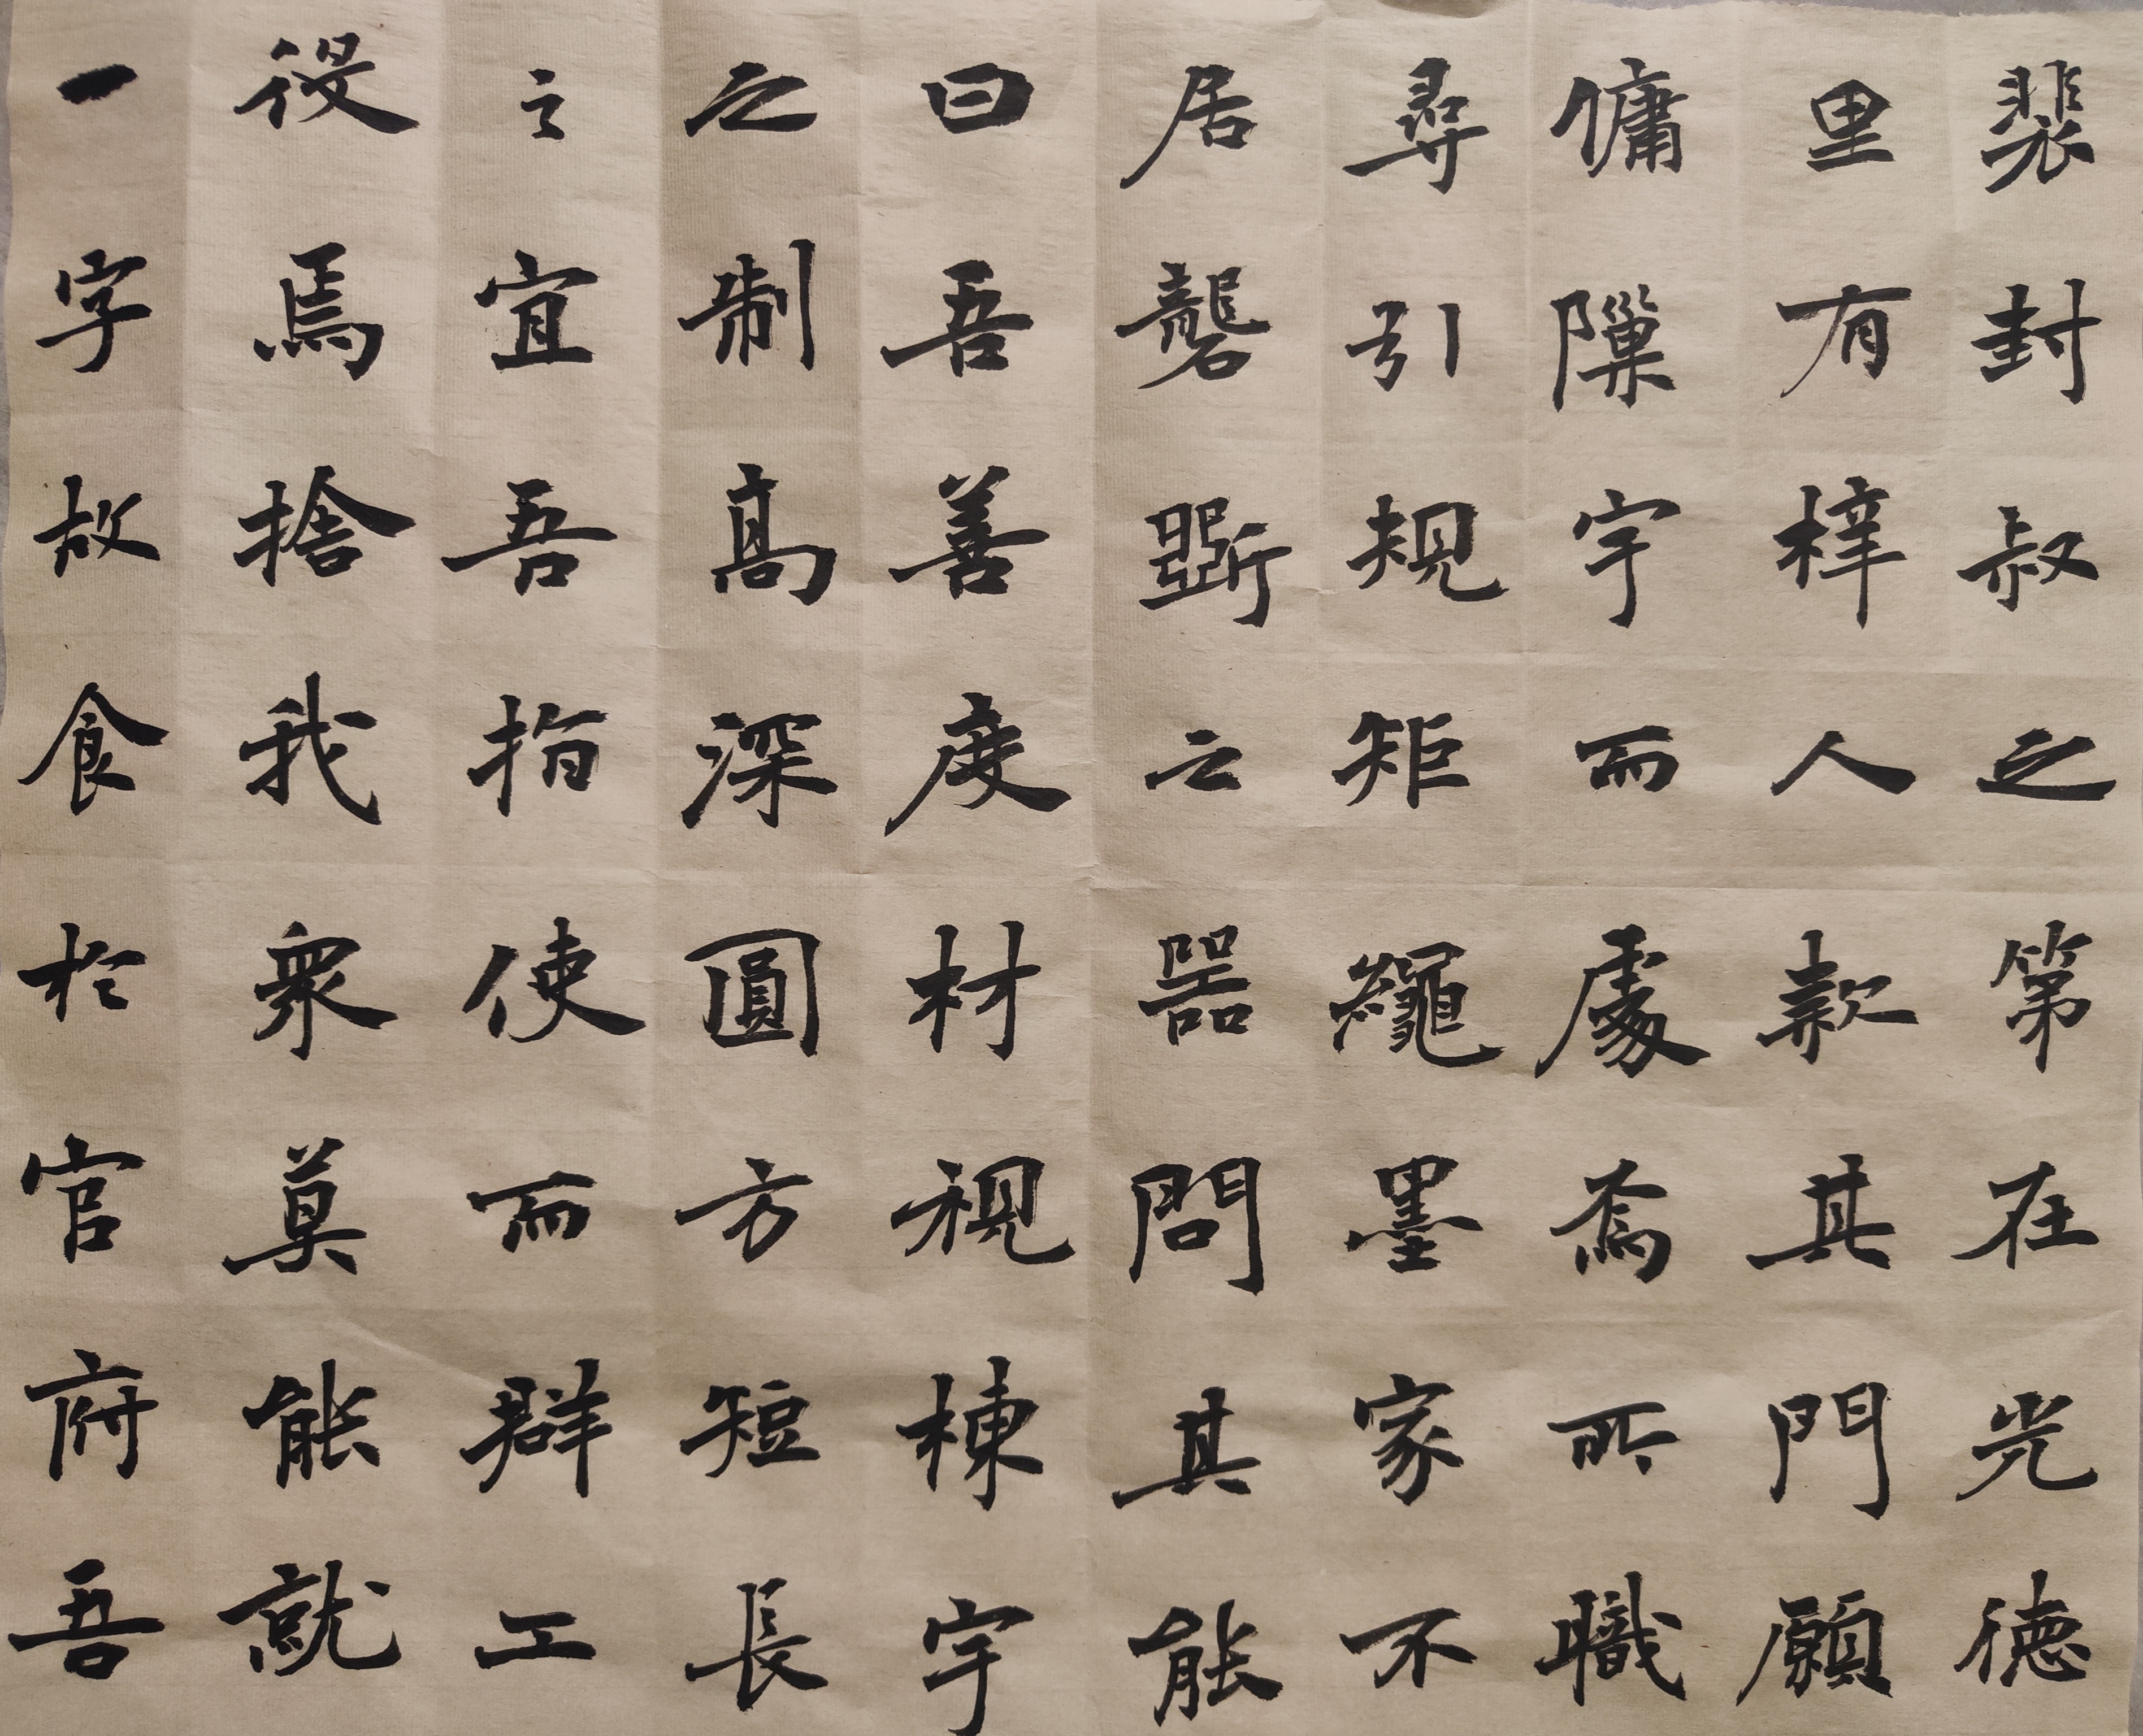 裴封叔之第在光德
里有梓人款其門願
傭隟宇而處焉所職
尋引規矩繩墨家不
居礱斲之器問其能
曰吾善度材視棟宇
之制高深圓方短長
之宜吾指使而群工
役焉捨我衆莫能就
一字故食於官府吾